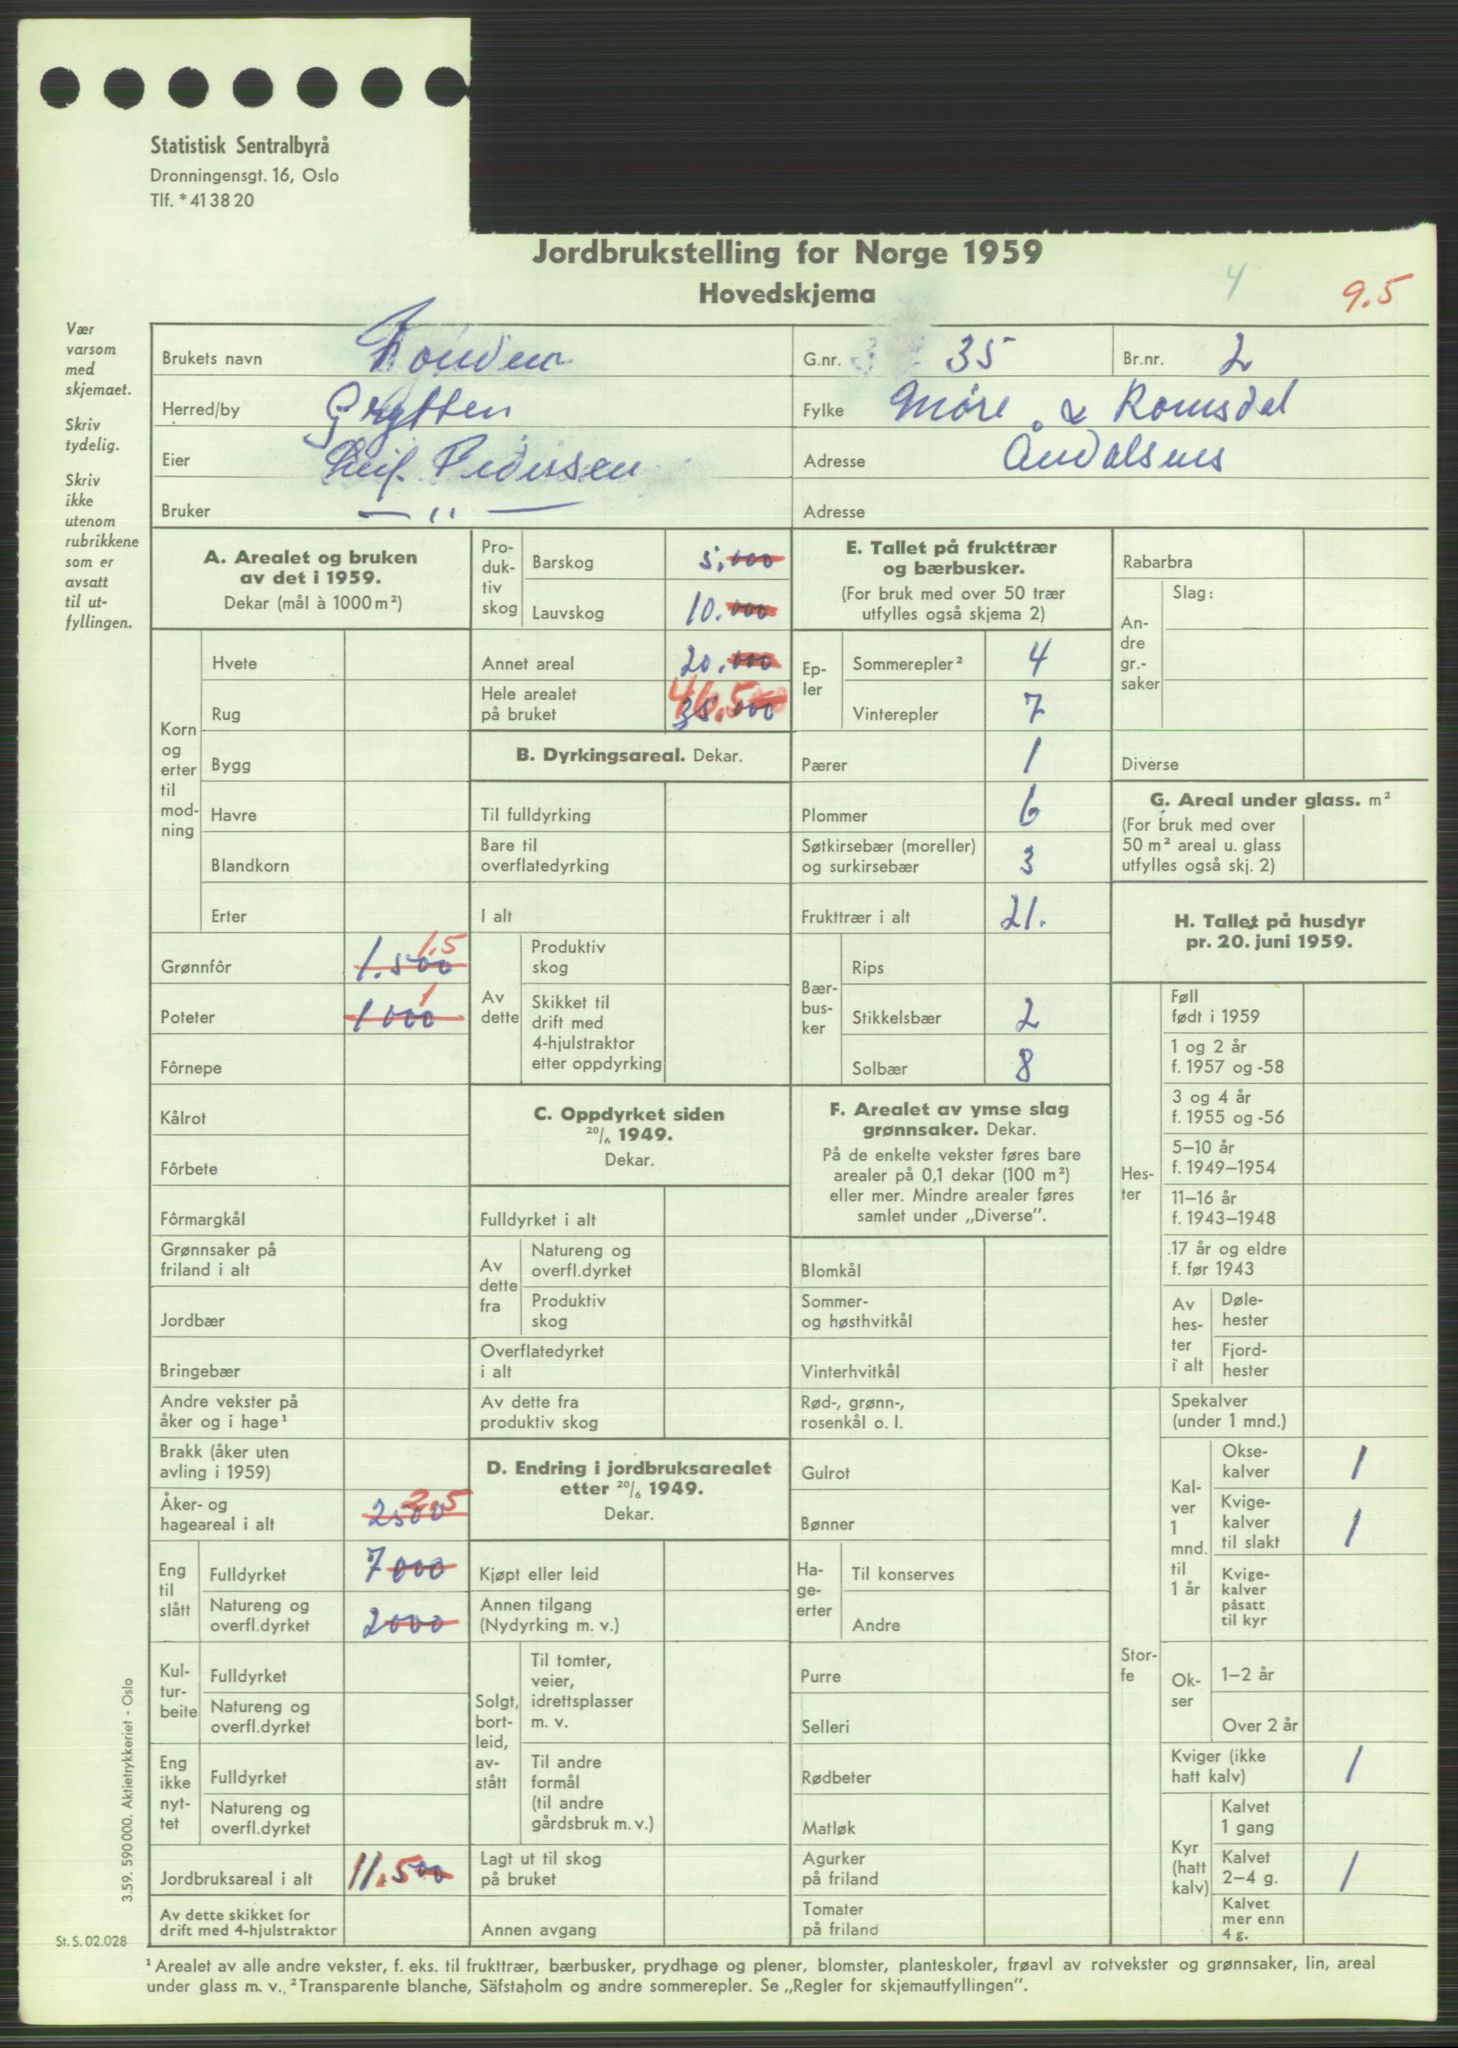 Statistisk Sentralbyrå
Dronningensgt. 16, Oslo
Tlf. * 41 38 20
Jordbrukstelling for Norge 1959
Hovedskjema
4
9.5
Vær
varsom
med
skjemaet.
Skriv
tydelig.
Skriv
ikke
utenom
rubrikkene
som er
avsatt
til ut-
fyllingen.
Brukets navn
G.nr. 35 Br.nr. 2
Herred/by Grytten
Fylke Møre & Romsdal
Eier Leif Pedersen
Adresse Åndalsnes
Bruker — " —
Adresse
A. Arealet og bruken
av det i 1959.
Dekar (mål à 1000 m²)
Korn
og
erter
til
mod-
ning
Hvete
Rug
Bygg
Havre
Blandkorn
Erter
Grønnfôr 1.500 1.5
Poteter 1000 1
Fôrnepe
Kålrot
Fôrbete
Fôrmargkål
Grønnsaker på
friland i alt
Jordbær
Bringebær
Andre vekster på
åker og i hage¹
Brakk (åker uten
avling i 1959)
Åker- og
hageareal i alt 2500 2.5
Eng
til
slått
Fulldyrket 7000
Natureng og
overfl.dyrket 2000
Kul-
tur-
beite
Fulldyrket
Natureng og
overfl.dyrket
Eng
ikke
nyt-
tet
Fulldyrket
Natureng og
overfl.dyrket
Jordbruksareal i alt 11.500
Av dette skikket for
drift med 4-hjulstraktor
Pro-
duk-
tiv
skog
Barskog 5.000
Lauvskog 10.000
Annet areal 20.000
Hele arealet
på bruket 35.000 46.5
B. Dyrkingsareal. Dekar.
Til fulldyrking
Bare til
overflatedyrking
I alt
Av
dette
Produktiv
skog
Skikket til
drift med
4-hjulstraktor
etter oppdyrking
C. Oppdyrket siden
20/6 1949.
Dekar.
Fulldyrket i alt
Av
dette
fra
Natureng og
overfl.dyrket
Produktiv
skog
Overflatedyrket
i alt
Av dette fra
produktiv skog
D. Endring i jordbruksarealet
etter 20/6 1949.
Dekar.
Kjøpt eller leid
Annen tilgang
(Nydyrking m. v.)
Solgt,
bort-
leid,
av-
stått
Til tomter,
veier,
idrettsplasser
m. v.
Til andre
formål
(til andre
gårdsbruk m. v.)
Lagt ut til skog
på bruket
Annen avgang
E. Tallet på frukttrær
og bærbusker.
(For bruk med over 50 trær
utfylles også skjema 2)
Ep-
ler
Sommerepler² 4
Vinterepler 7
Pærer 1
Plommer 6
Søtkirsebær (moreller)
og surkirsebær 3
Frukttrær i alt 21.
Bær-
bus-
ker
Rips
Stikkelsbær 2
Solbær 8
F. Arealet av ymse slag
grønnsaker. Dekar.
På de enkelte vekster føres bare
arealer på 0,1 dekar (100 m²)
eller mer. Mindre arealer føres
samlet under „Diverse".
Blomkål
Sommer-
og høsthvitkål
Vinterhvitkål
Rød-, grønn-,
rosenkål o. l.
Gulrot
Bønner
Ha-
ge-
erter
Til konserves
Andre
Purre
Selleri
Rødbeter
Matløk
Agurker
på friland
Tomater
på friland
Rabarbra
An-
dre
gr.-
saker
Slag:
Diverse
G. Areal under glass. m²
(For bruk med over
50 m² areal u. glass
utfylles også skj. 2)
H. Tallet på husdyr
pr. 20. juni 1959.
Hes-
ter
Føll
født i 1959
1 og 2 år
f. 1957 og -58
3 og 4 år
f. 1955 og -56
5–10 år
f. 1949–1954
11–16 år
f. 1943–1948
17 år og eldre
f. før 1943
Av
hes-
ter
i alt
Døle-
hester
Fjord-
hester
Stor-
fe
Spekalver
(under 1 mnd.)
Kal-
ver
1
mnd.
til
1 år
Okse-
kalver 1
Kvige-
kalver
til slakt 1
Kvige-
kalver
påsatt
til kyr
Ok-
ser
1–2 år
Over 2 år
Kviger (ikke
hatt kalv) 1
Kyr
(hatt
kalv)
Kalvet
1 gang
Kalvet
2–4 g. 1
Kalvet
mer enn
4 g.
3.59. 590 000. Aktietrykkeriet - Oslo
St. S. 02.028
¹ Arealet av alle andre vekster, f. eks. til frukttrær, bærbusker, prydhage og plener, blomster, planteskoler, frøavl av rotvekster og grønnsaker, lin, areal
under glass m. v. ² Transparente blanche, Säfstaholm og andre sommerepler. Se „Regler for skjemautfyllingen".